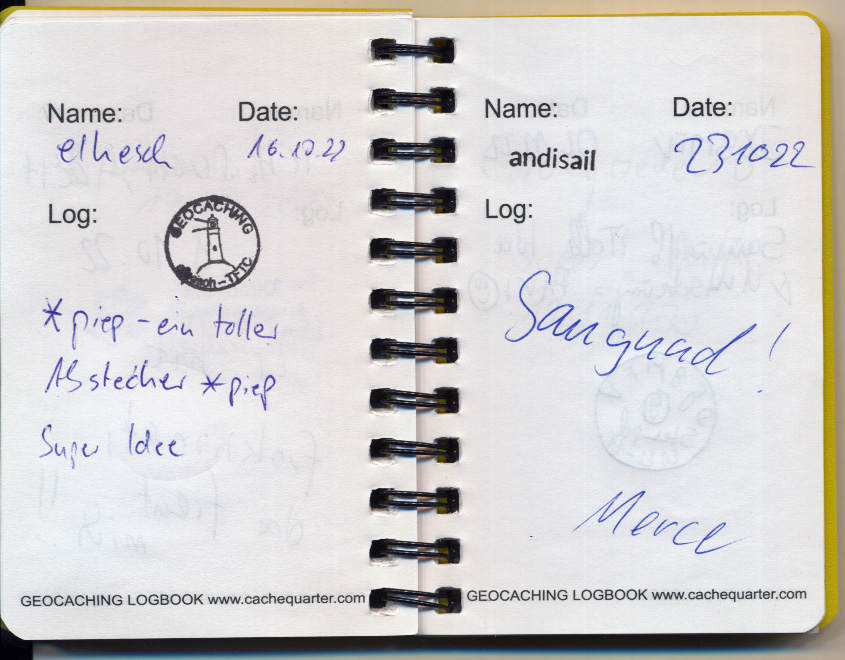 Name: Date:
elhesch 16.10.22
Log:
GEOCACHING
elhesch – TFTC
*piep – ein toller
Abstecher *piep
Super Idee
GEOCACHING LOGBOOK www.cachequarter.com
Name: Date:
andisail 231022
Log:
Sau guad!
Merce
GEOCACHING LOGBOOK www.cachequarter.com